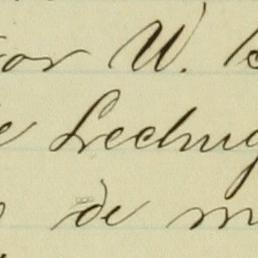 or W. B
e Lechug
de m